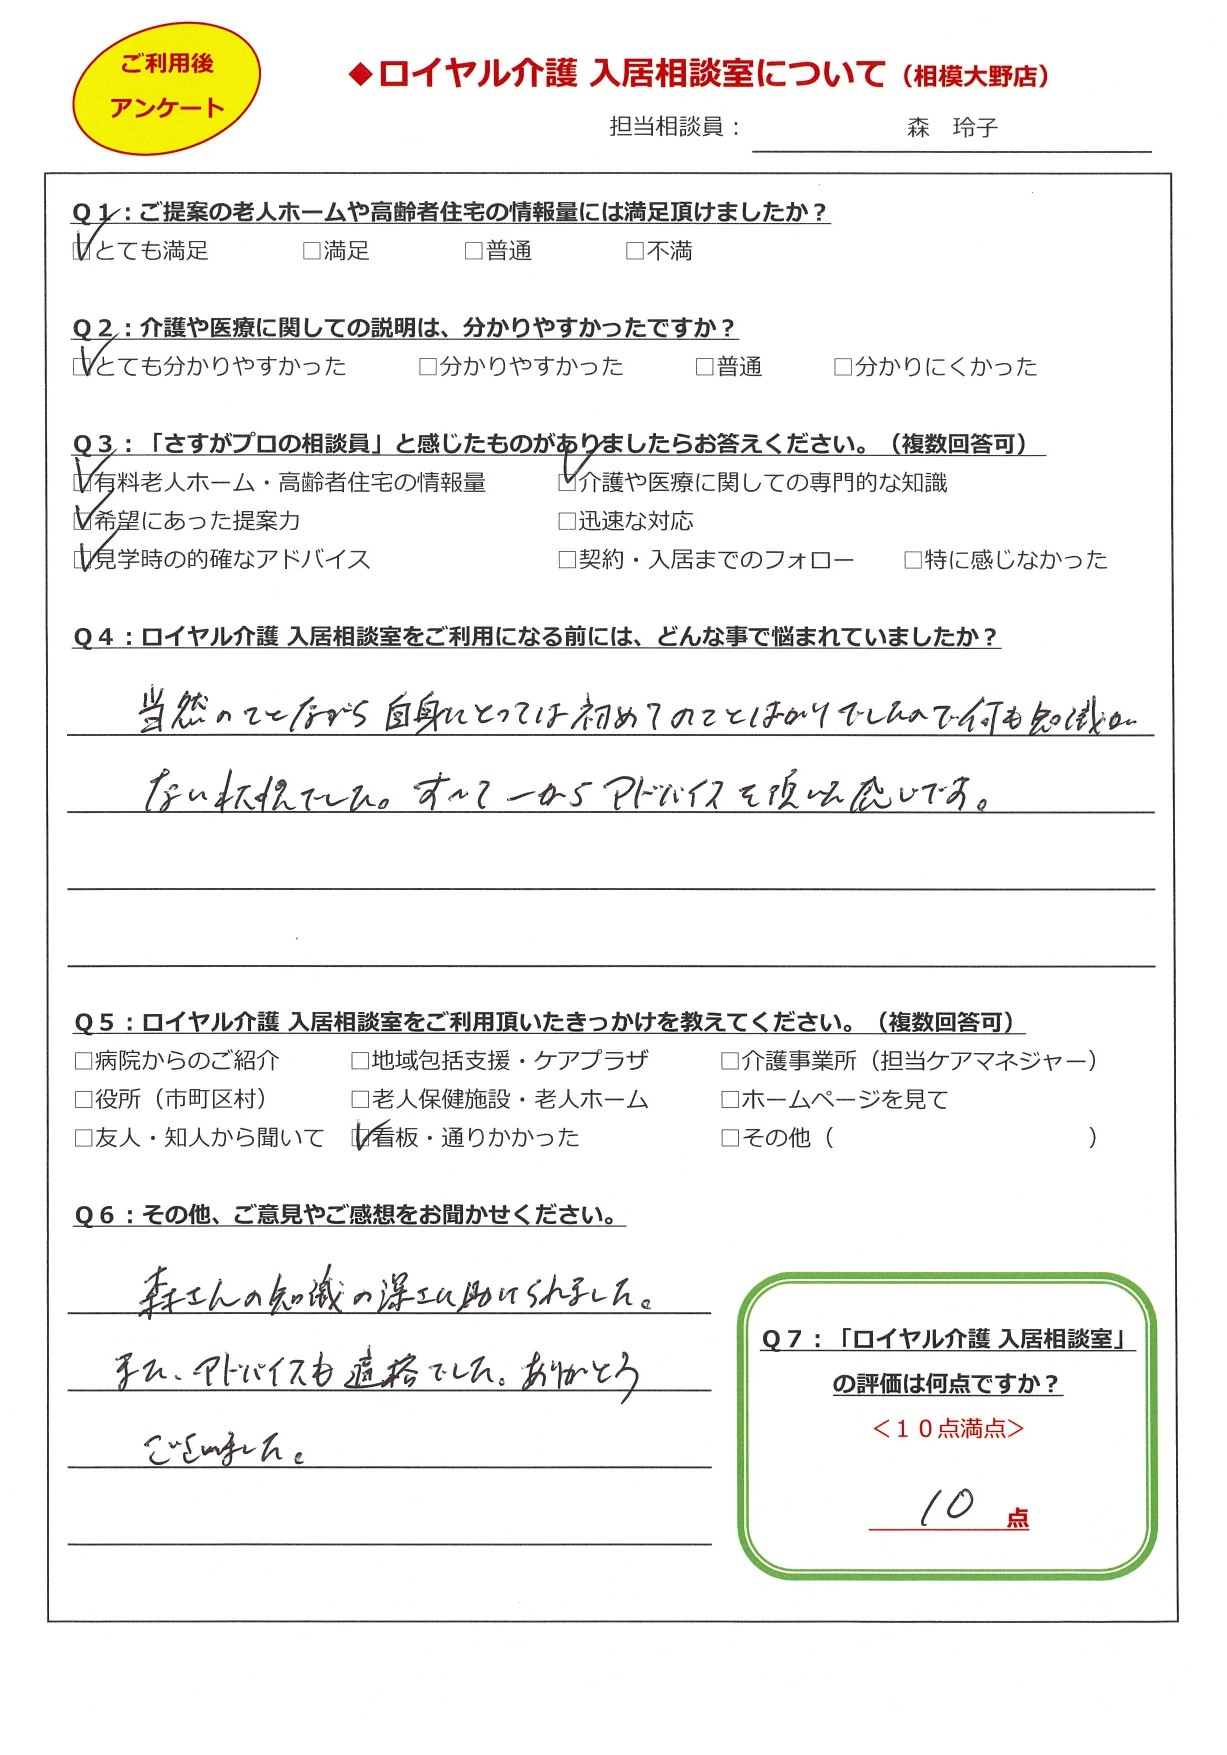 ご利用後
アンケート
◆ロイヤル介護 入居相談室について（相模大野店）
担当相談員： 森　玲子
Q１：ご提案の老人ホームや高齢者住宅の情報量には満足頂けましたか？
☑とても満足 □満足 □普通 □不満
Q２：介護や医療に関しての説明は、分かりやすかったですか？
☑とても分かりやすかった □分かりやすかった □普通 □分かりにくかった
Q３：「さすがプロの相談員」と感じたものがありましたらお答えください。（複数回答可）
☑有料老人ホーム・高齢者住宅の情報量 ☑介護や医療に関しての専門的な知識
☑希望にあった提案力 □迅速な対応
☑見学時の的確なアドバイス □契約・入居までのフォロー □特に感じなかった
Q４：ロイヤル介護 入居相談室をご利用になる前には、どんな事で悩まれていましたか？
当然のことながら自身にとっては初めてのことばかりでしたので何も知識が
ない状態でした。すべて一からアドバイスを頂いた感じです。
Q５：ロイヤル介護 入居相談室をご利用頂いたきっかけを教えてください。（複数回答可）
□病院からのご紹介 □地域包括支援・ケアプラザ □介護事業所（担当ケアマネジャー）
□役所（市町区村） □老人保健施設・老人ホーム □ホームページを見て
□友人・知人から聞いて ☑看板・通りかかった □その他（ ）
Q６：その他、ご意見やご感想をお聞かせください。
森さんの知識の深さに助けられました。
また、アドバイスも適格でした。ありがとう
ございました。
Q７：「ロイヤル介護 入居相談室」
の評価は何点ですか？
＜１０点満点＞
10 点